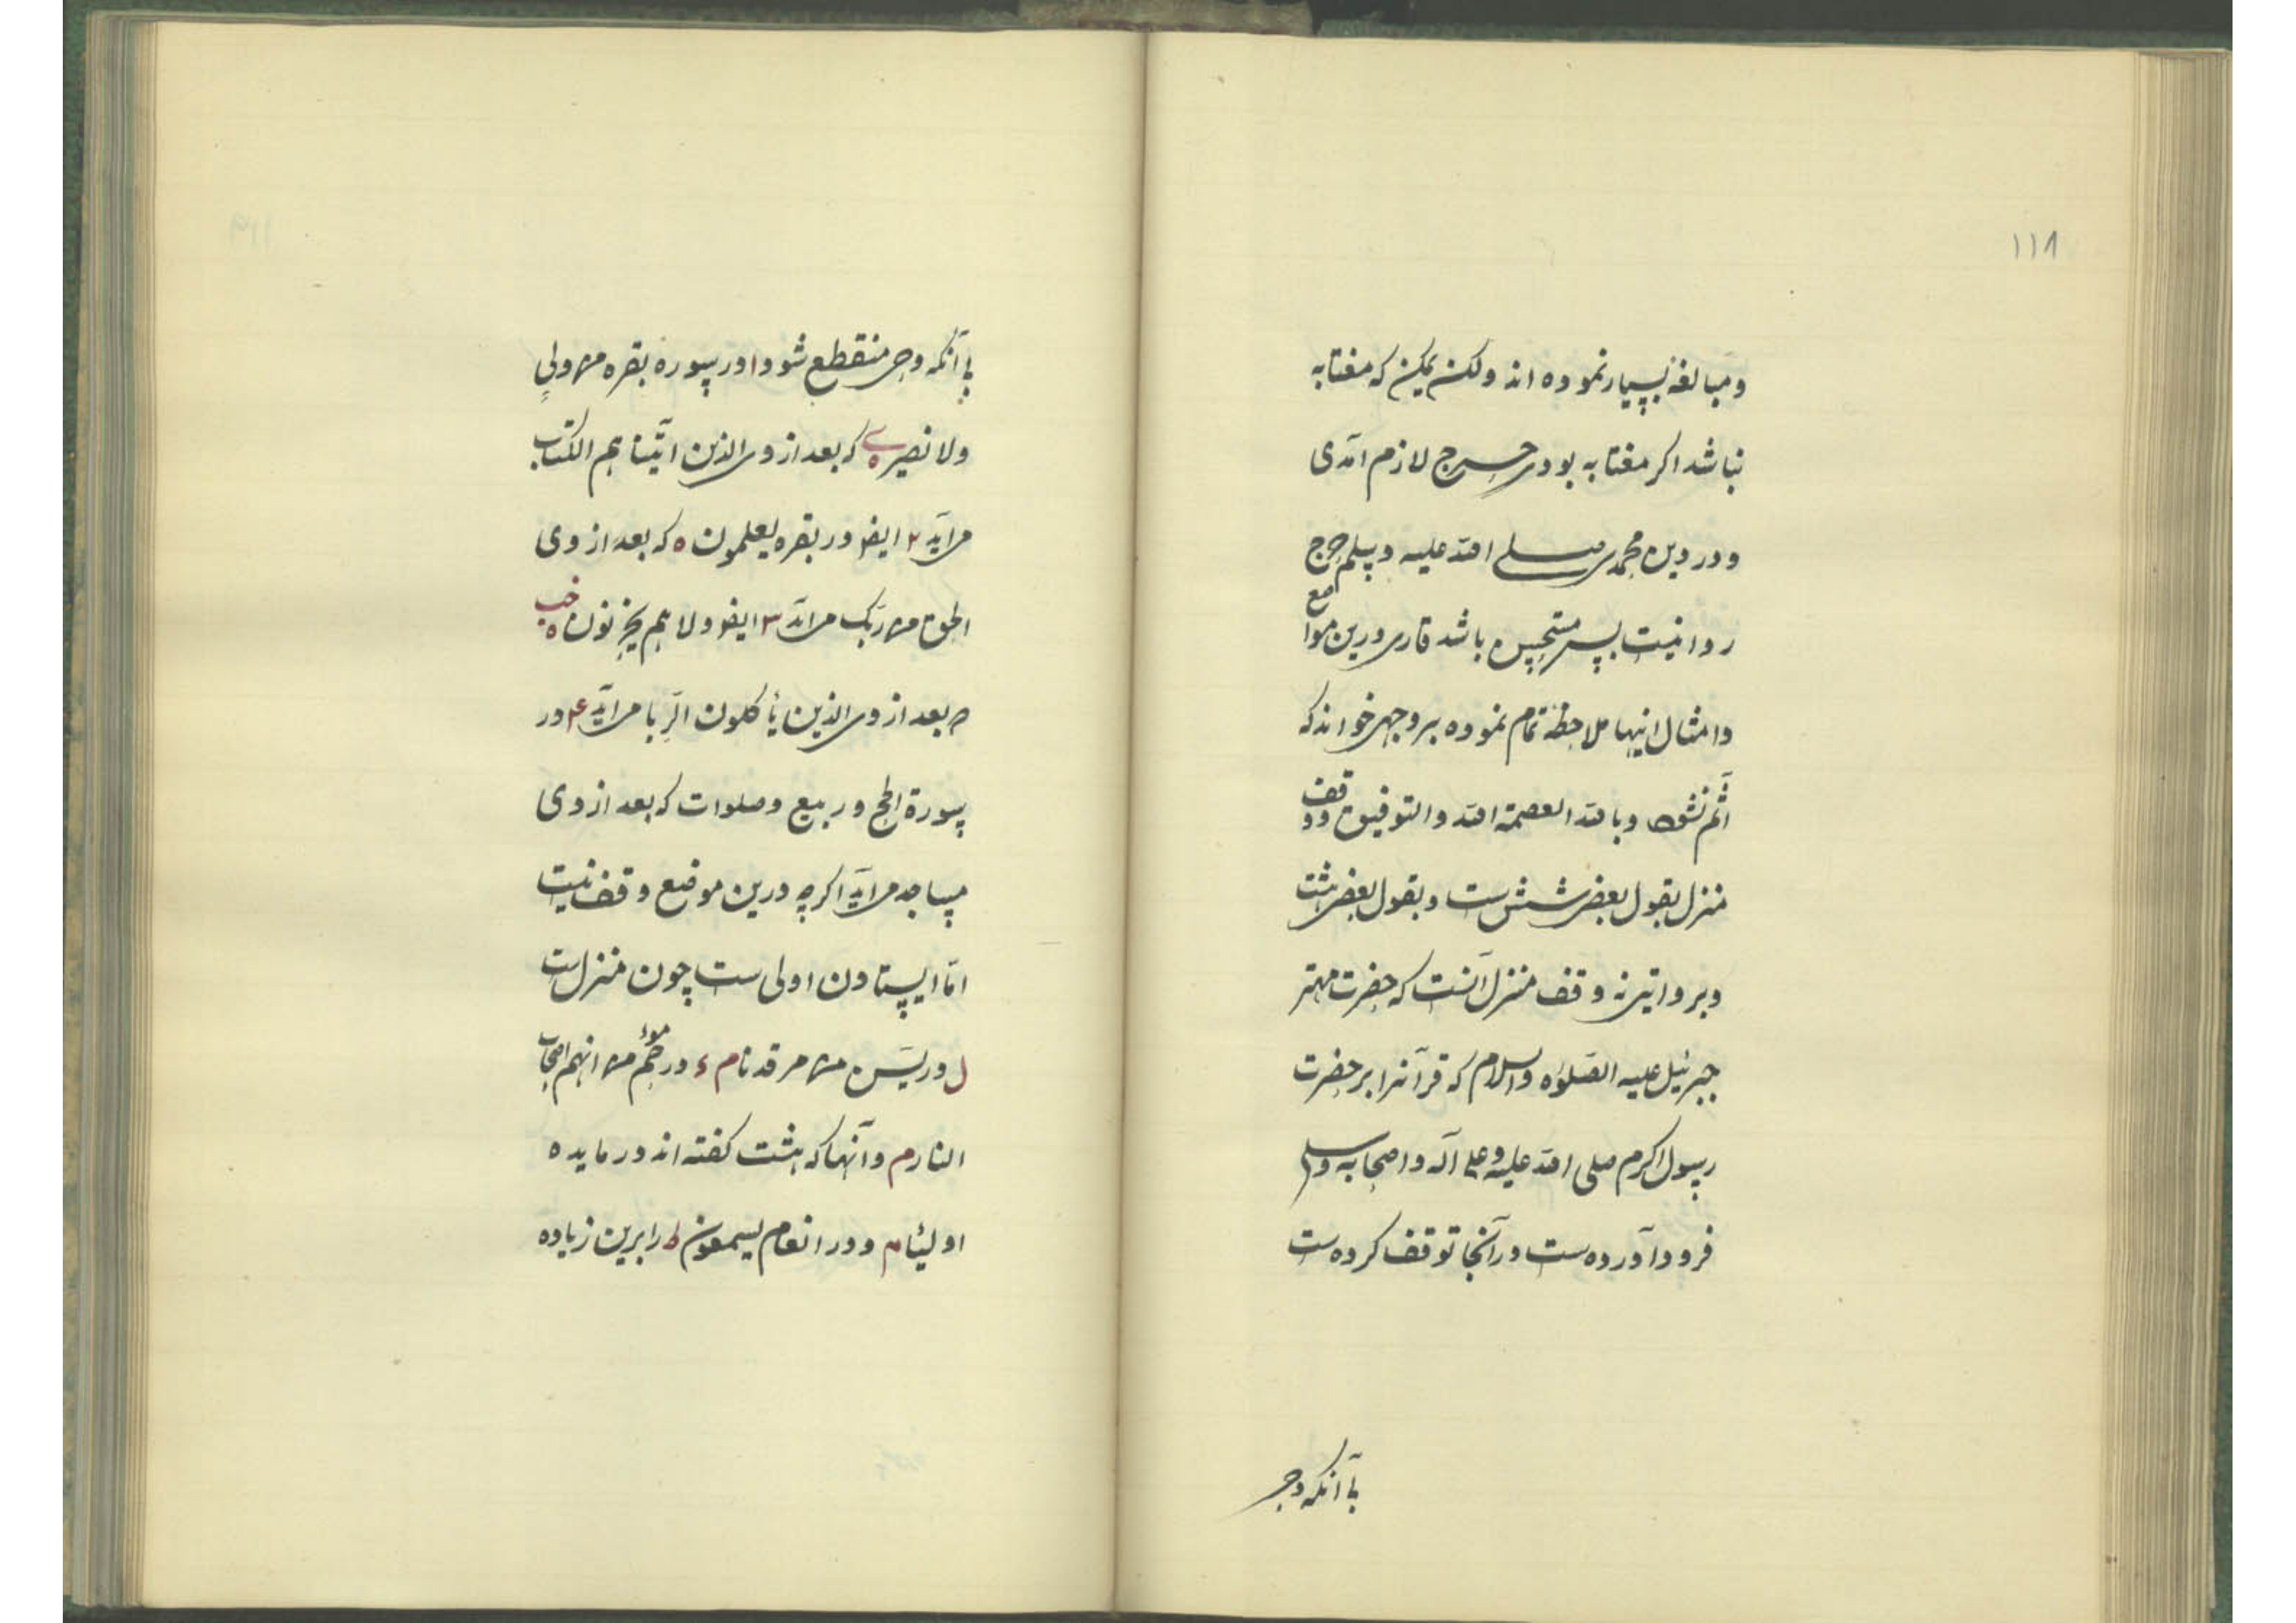 ۱۱۸
و مبالغه بسیار نموده اند ولکن یمکن که مفتابه
نباشد اکر مفتابه بودی حرج لازم آمدی
و در دین محمدی صلی الله علیه وسلم حرج
روا نیست پس مستحسن باشد قاری درین مواضع
و امثال اینها ملاحظه تمام نموده بر وجهی خواند که
آثم نشود وبالله العصمة الله والتوفیق ووقف
منزل بقول بعضی شش ست و بقول بعضی هشت
وبروایتی نه وقف منزل آنست که حضرت مهتر
جبرئیل علیه الصلواة والسلام که قرآنرا بر حضرت
رسول اکرم صلی الله علیه وعلی آله واصحابه وسلم
فرود آورده ست در آنجا توقف کرده ست
بآ آنکه وحی
۱۱۹
بآ آنکه وحی منقطع شود ا در سوره بقره من ولی
ولا نصیر ه که بعد از وی الذین اتینا هم الکتاب
می آید ۲ ایضا در بقره یعلمون ه که بعد از وی
الحق من ربک می آید ۳ ایضا ولا هم یحزنون ه
که بعد از وی الذین یأکلون الربا می آید ۴ در
سورة الحج و ربیع وصلوات که بعد از وی
مساجد می آید اکرچه درین موضع وقف نیست
اما ایستادن اولی ست چون منزل ست
ل در یس من مرقدنا م ء در حم موء من انهم اصحاب
النار م و آنها که هشت کفته اند در مایده
اولیٔا م و در انعام یسمعون ط را برین زیاده